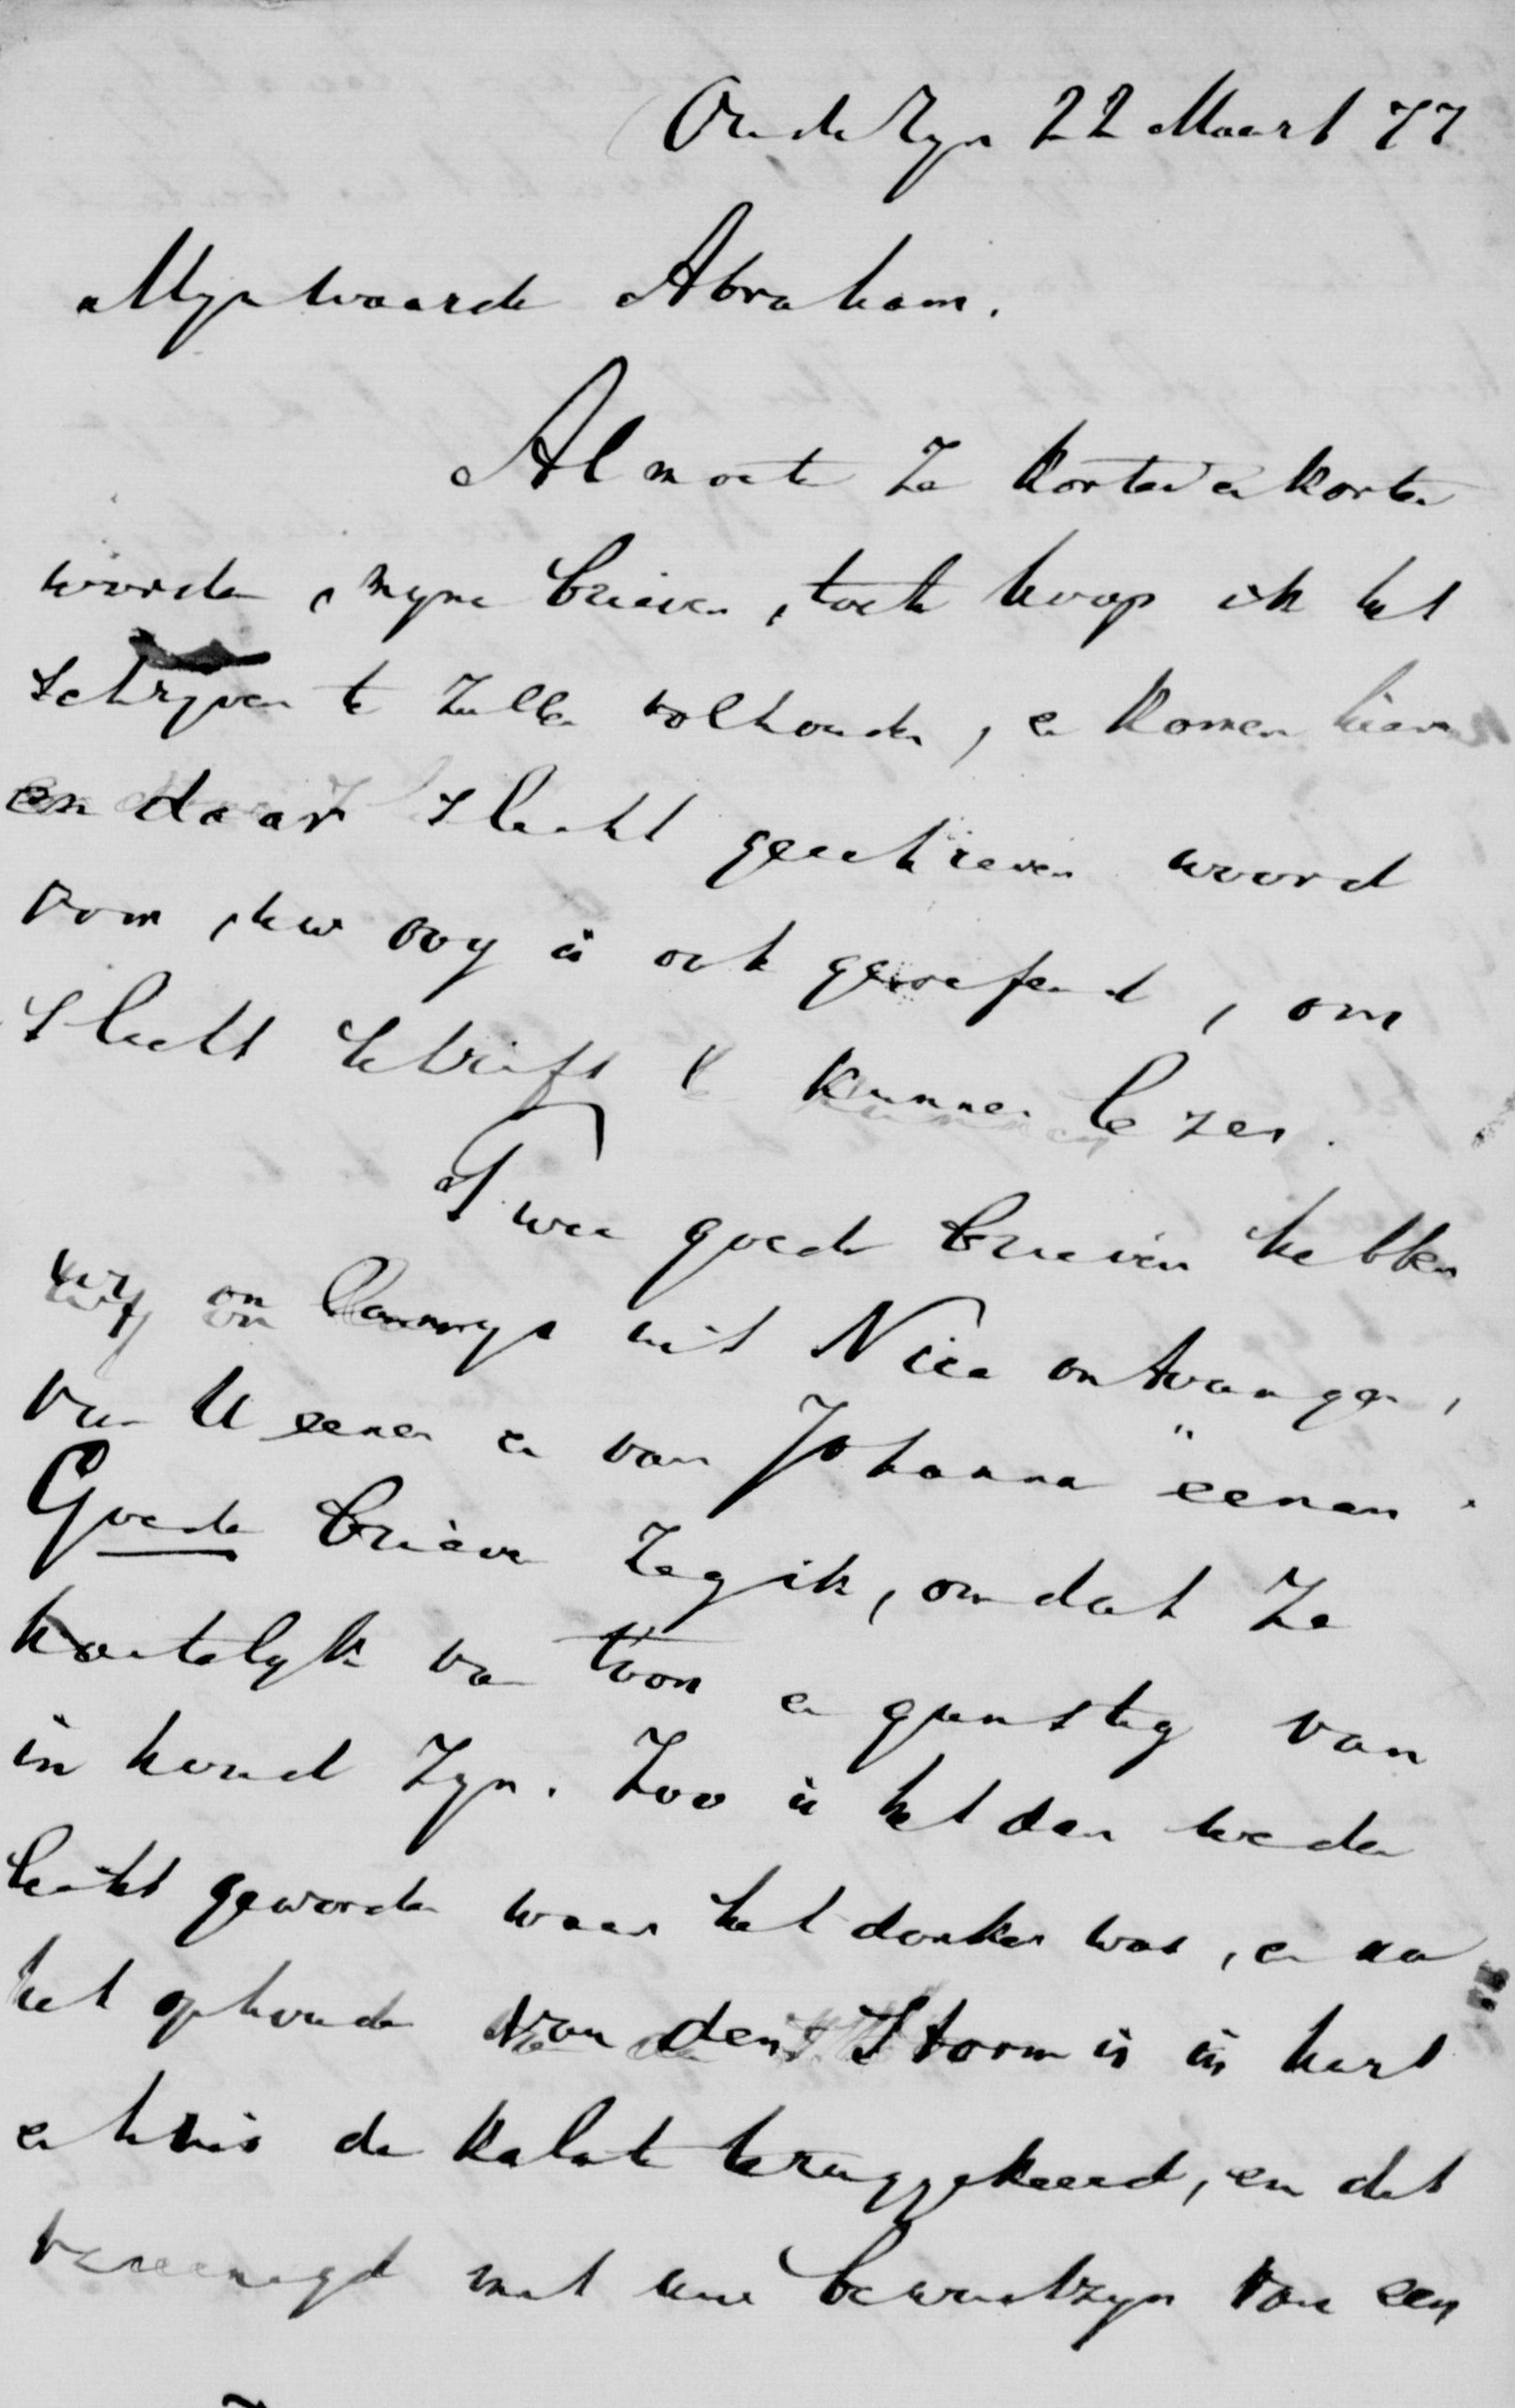 Oude Ryn 22 Maart 77
Myn waarde Abraham.
Al moeten ze korter en korter
worden, myne brieven, toch hoop ik het
schryven te zullen volhouden, en komen hier
en daar slecht geschreven woord
voor, uw oog is ook geoefend, om
slecht schrift te kunnen lezen.
Twee goede brieven hebben
wy uit Nice ontvangen,
van U eenen en van Johanna eenen.
Goede brieven zeg ik, omdat ze
hartelyk van toon en gunstig van
inhoud zyn. Zoo is het dan weder
licht geworden waar het donker was, en na
het ophouden van den storm is in hart
en huis de kalmte teruggekeerd, en dat
vereenigd met uw bewustzyn van een